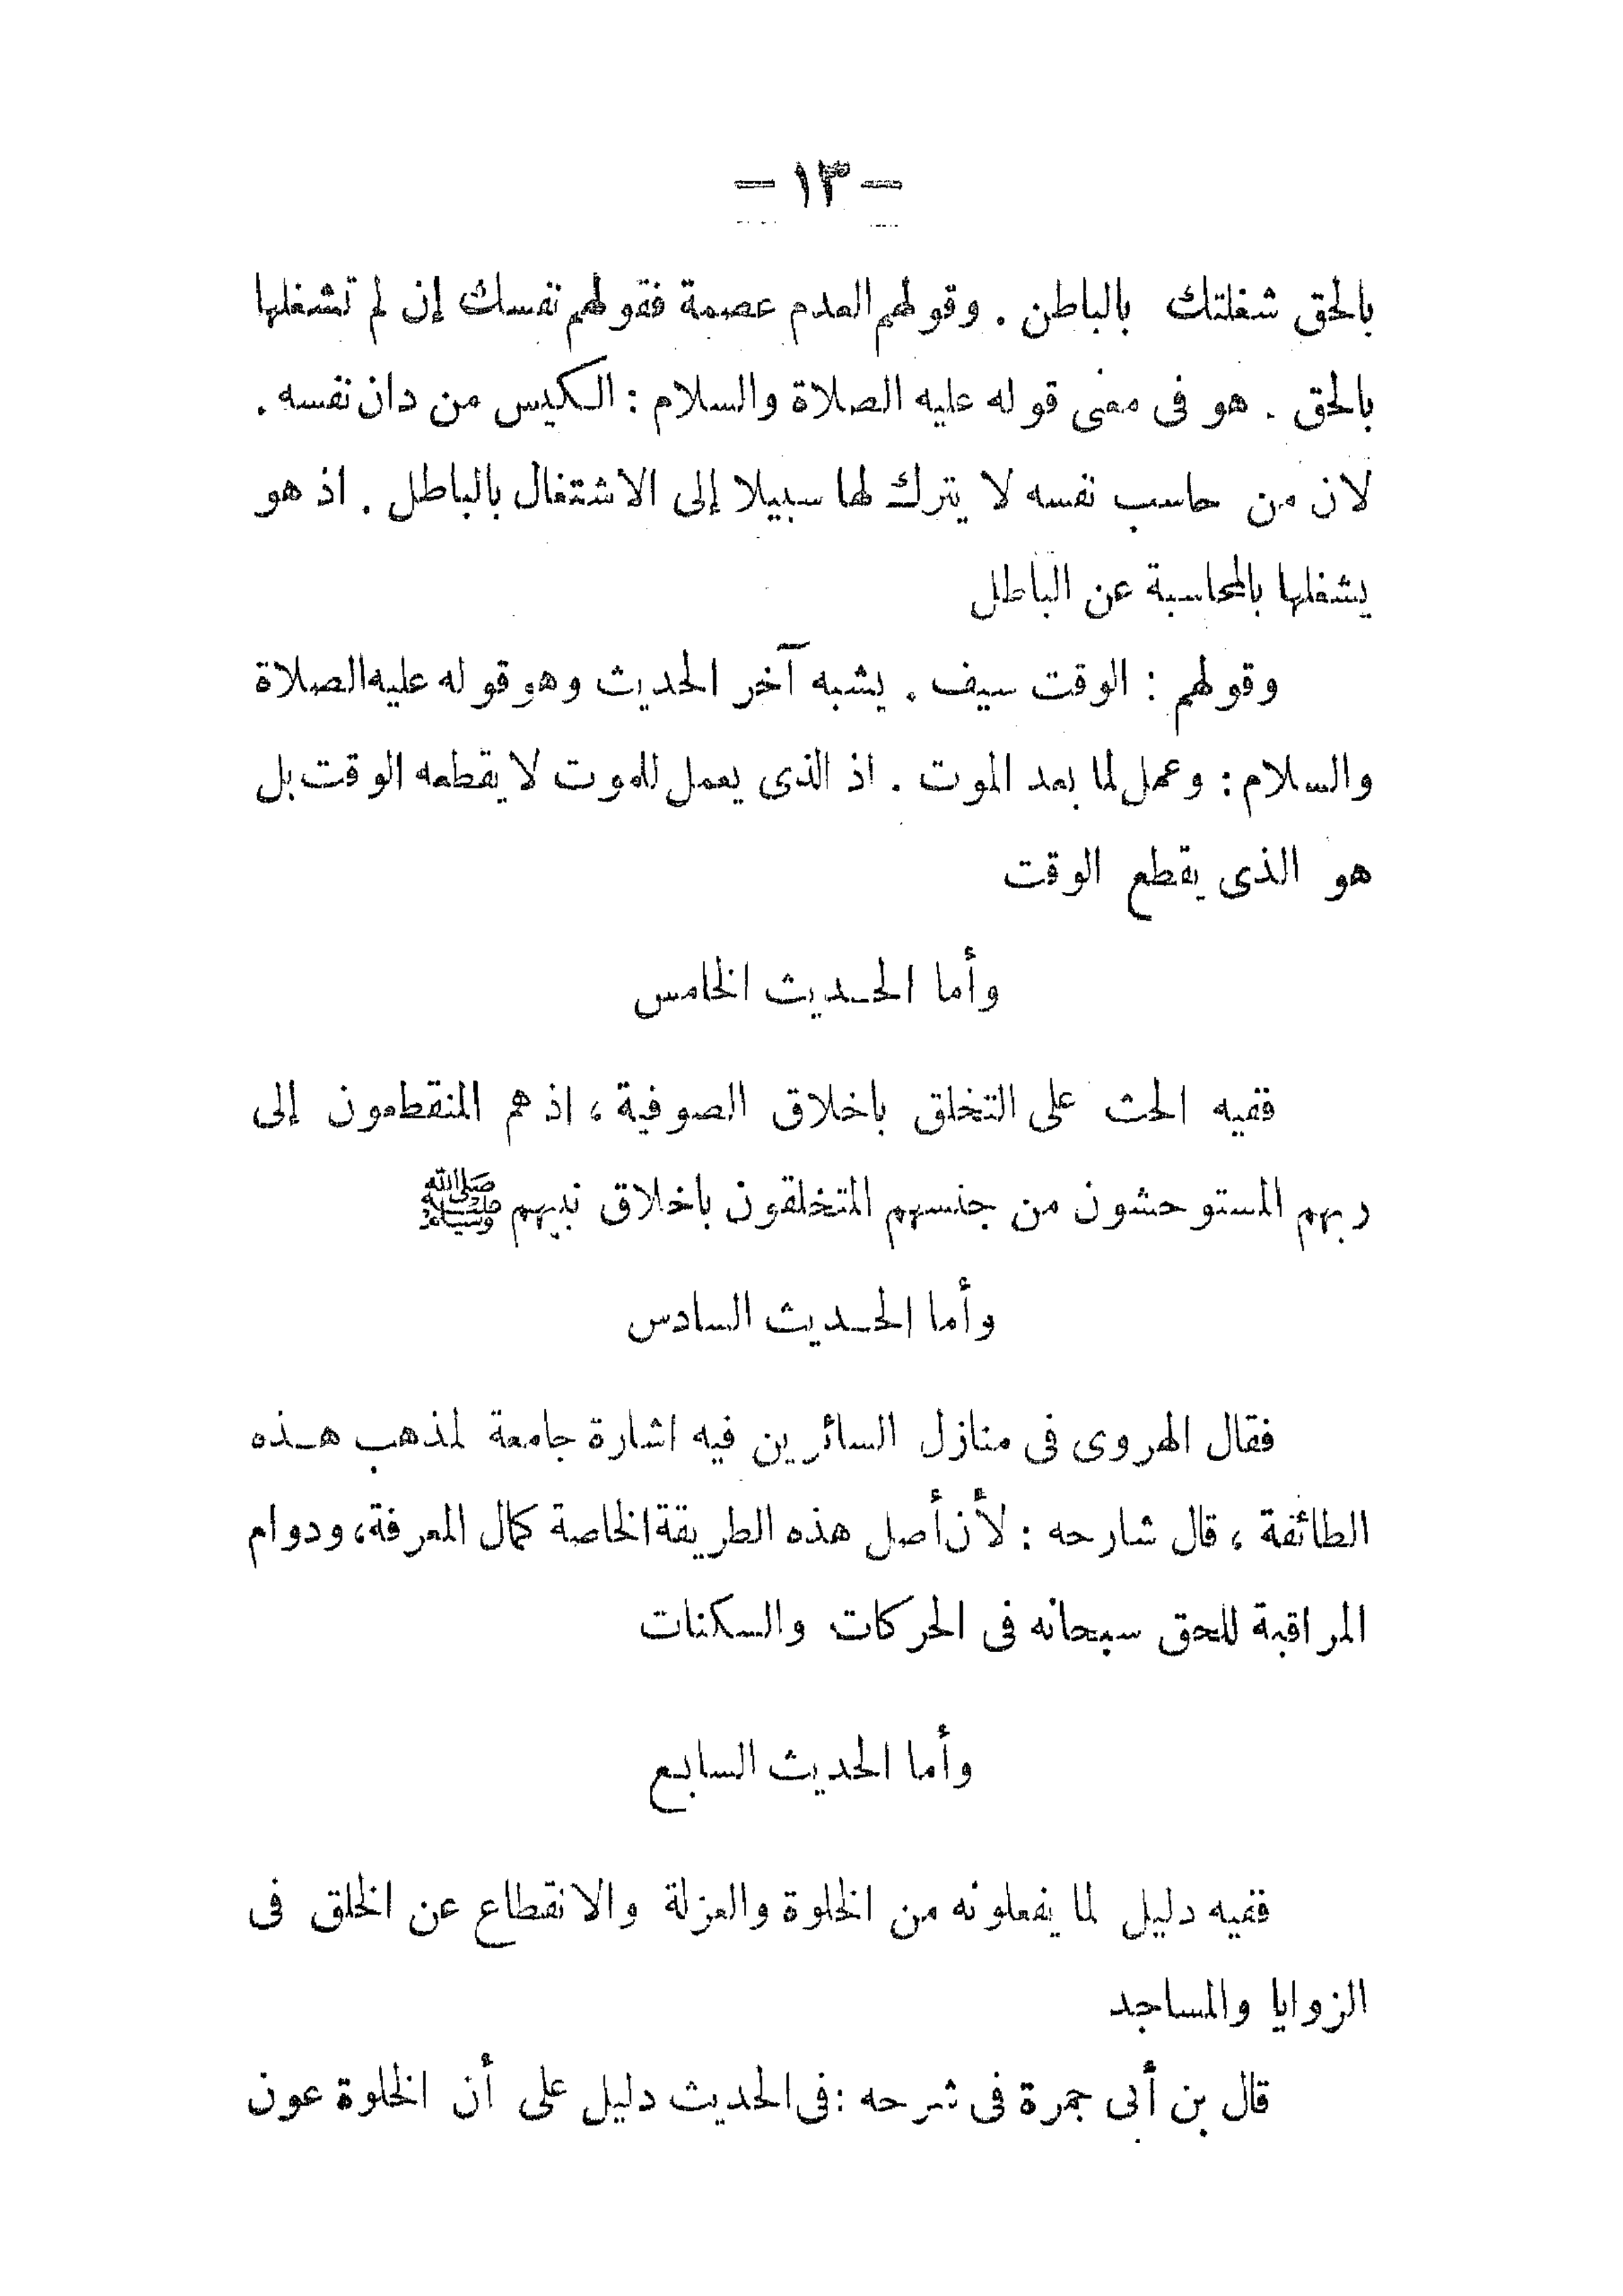 — ١٣ —
بالحق شغلتك بالباطن . وقولهم العدم عصمة فقولهم نفسك إن لم تشغلها
بالحق . هو فى معنى قوله عليه الصلاة والسلام : الكيس من دان نفسه .
لان من حاسب نفسه لا يترك لها سبيلا إلى الاشتغال بالباطل . اذ هو
يشغلها بالمحاسبة عن الباطل
وقولهم : الوقت سيف . يشبه آخر الحديث وهو قوله عليه الصلاة
والسلام : وعمل لما بعد الموت . اذ الذى يعمل للموت لا يقطعه الوقت بل
هو الذى يقطع الوقت
وأما الحديث الخامس
ففيه الحث على التخلق باخلاق الصوفية ، اذ هم المنقطعون إلى
ربهم المستوحشون من جنسهم المتخلقون باخلاق نبيهم ﷺ
وأما الحديث السادس
فقال الهروى فى منازل السائرين فيه اشارة جامعة لمذهب هذه
الطائفة ، قال شارحه : لأن أصل هذه الطريقة الخاصة كمال المعرفة ، ودوام
المراقبة للحق سبحانه فى الحركات والسكنات
وأما الحديث السابع
ففيه دليل لما يفعلونه من الخلوة والعزلة والانقطاع عن الخلق فى
الزوايا والمساجد
قال بن أبى جمرة فى شرحه : فى الحديث دليل على أن الخلوة عون